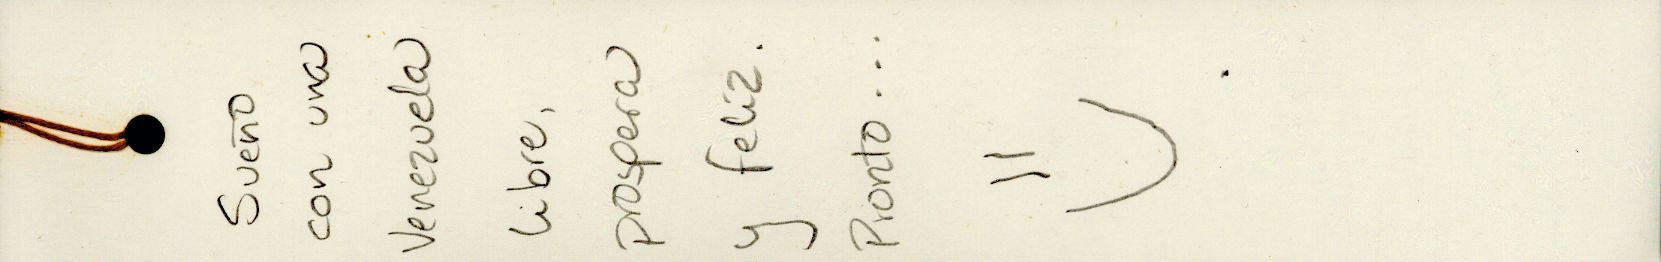 Sueño
con una
Venezuela
libre,
prospera
y feliz.
Pronto...